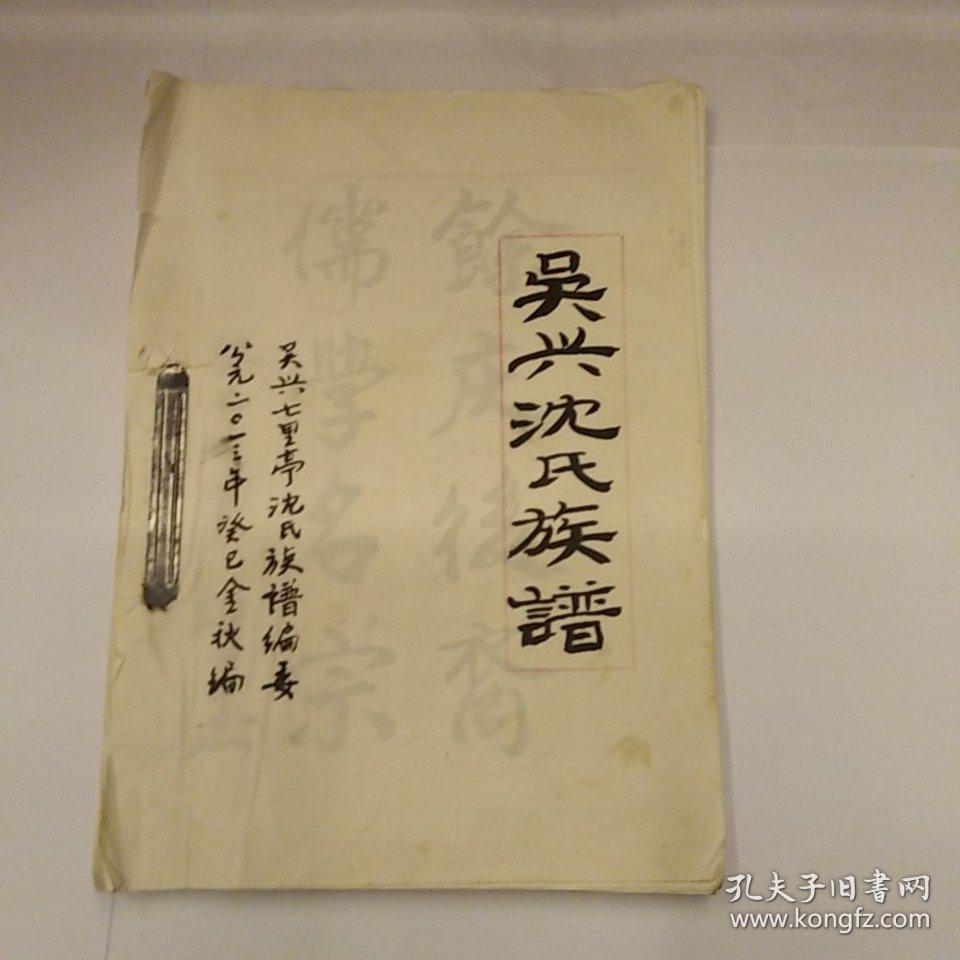 吳兴沈氏族譜
吴兴七里亭沈氏族譜编委
公元二〇一三年癸巳金秋编
餘慶後裔
儒學名宗
孔夫子旧書网
www.kongfz.com